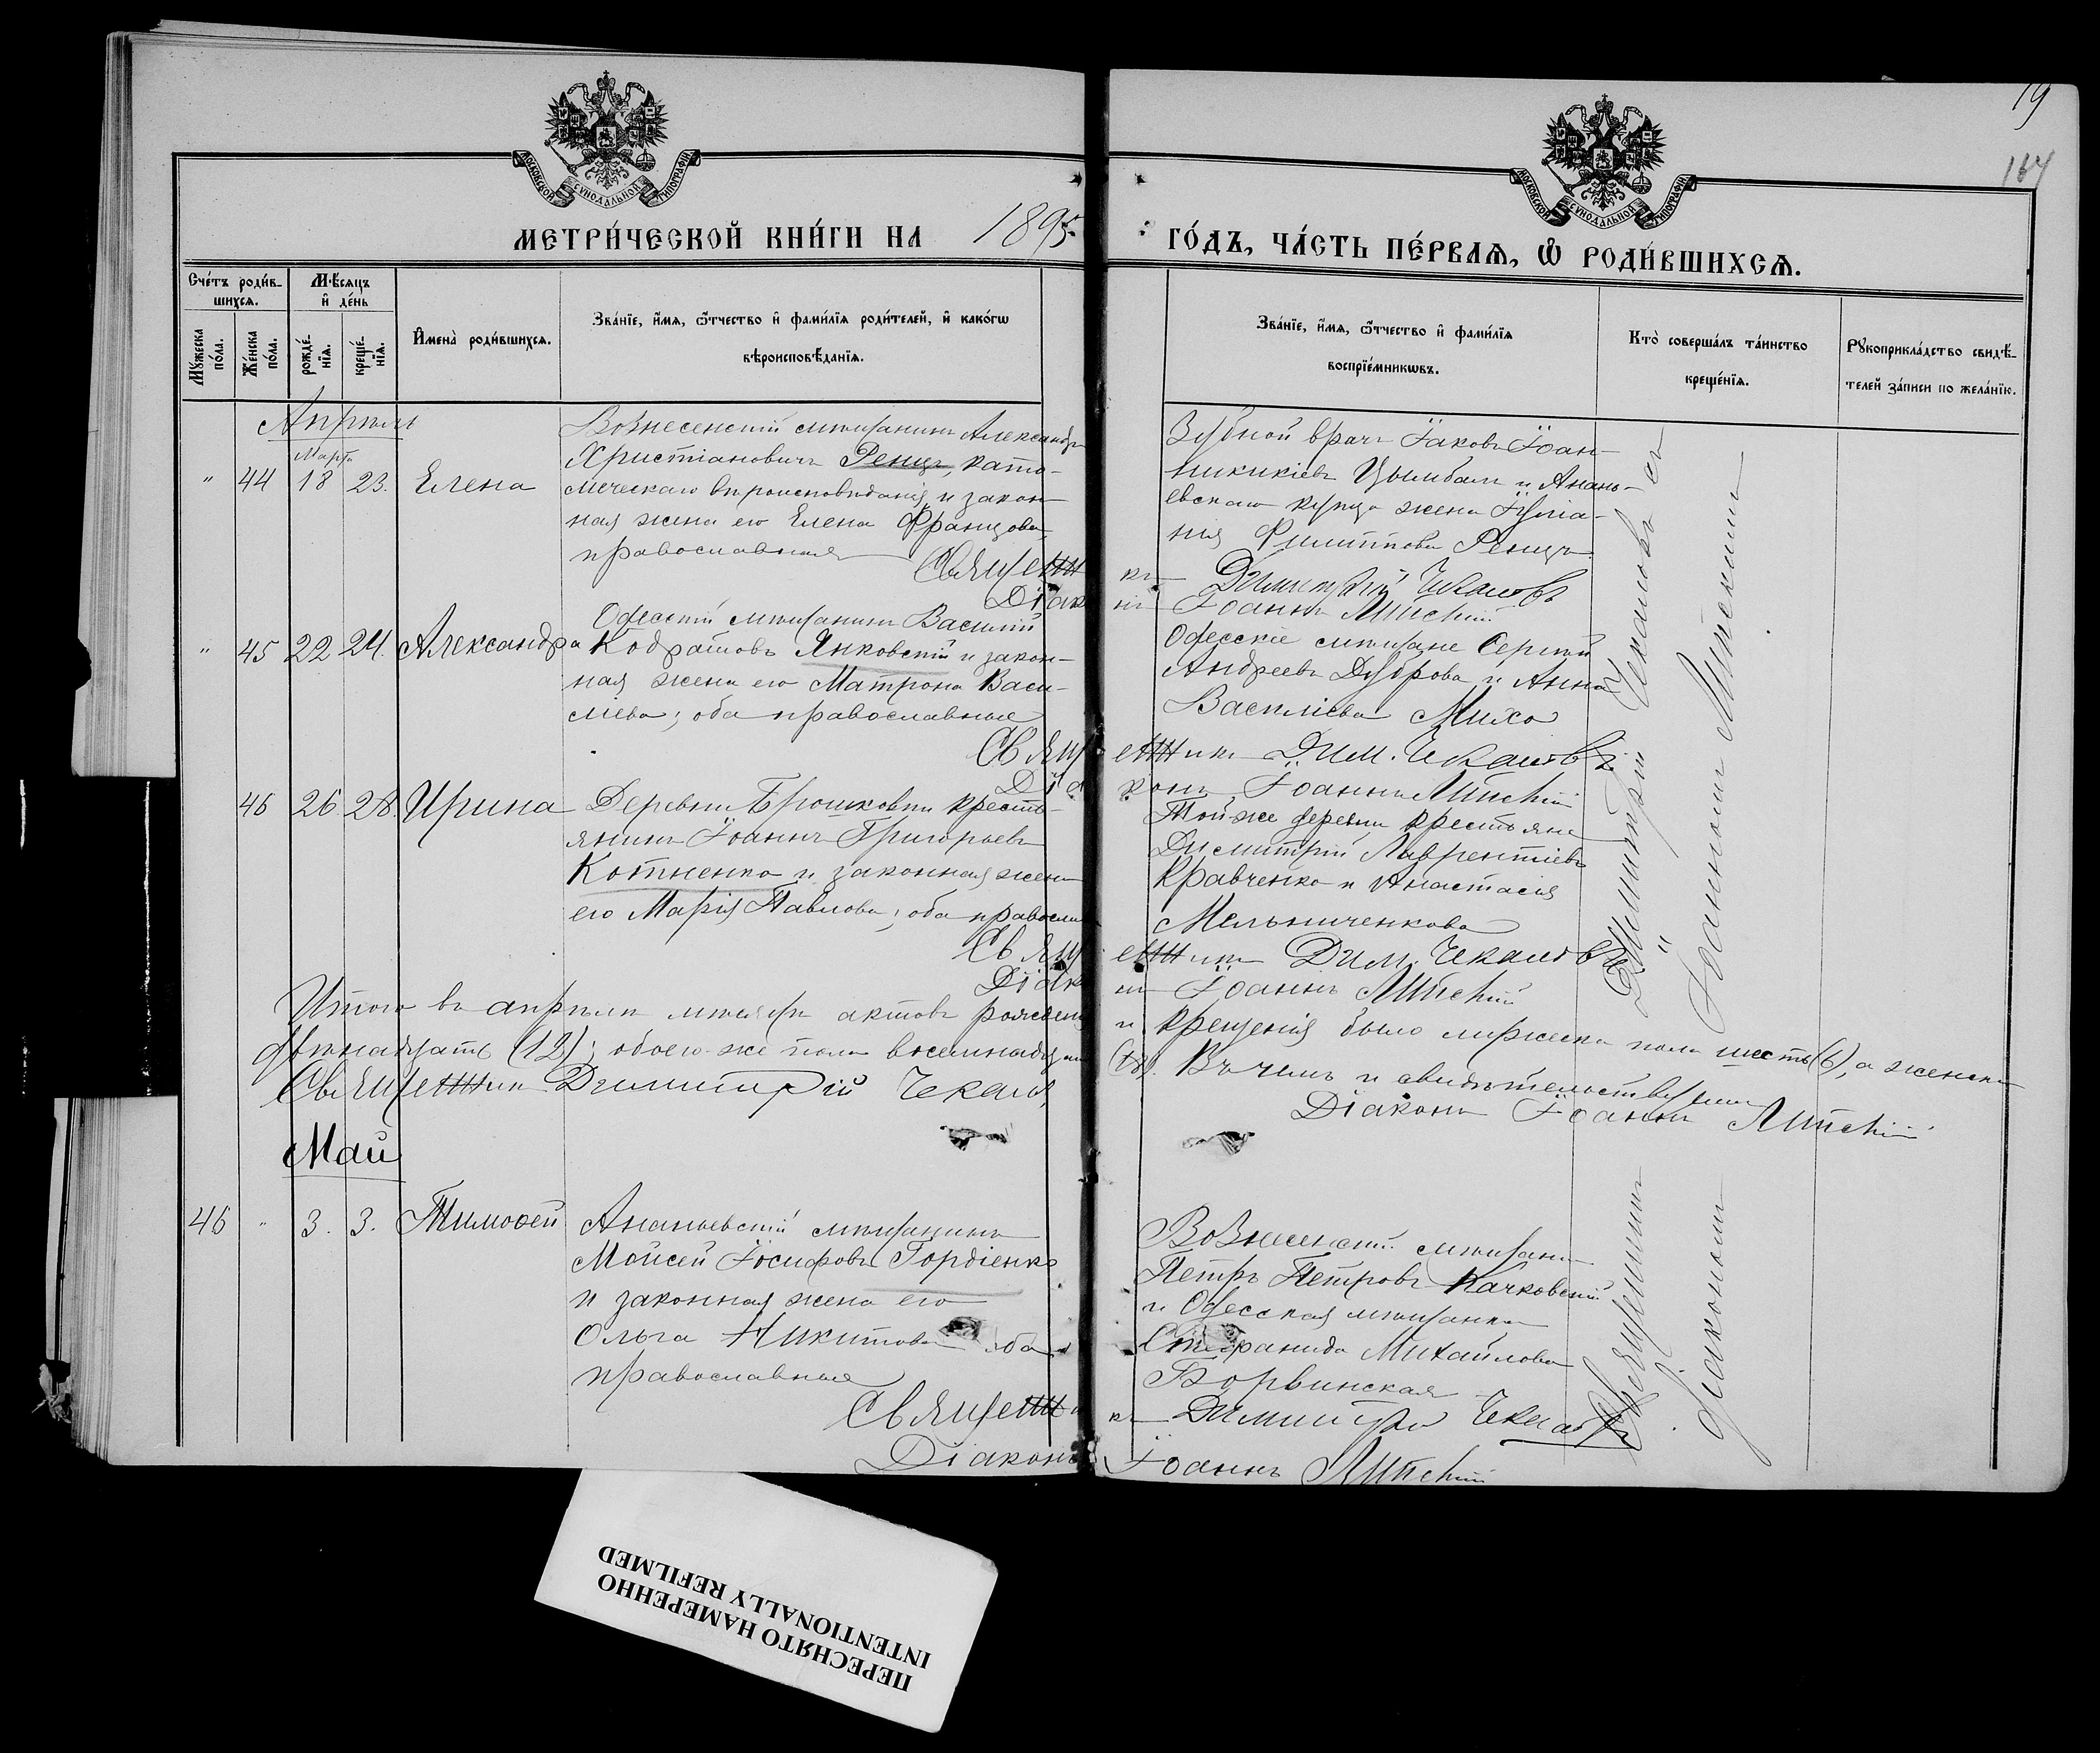 19
164
МОСКОВСКОЙ СѴНОДАЛЬНОЙ ТИПОГРАФІИ
МОСКОВСКОЙ СѴНОДАЛЬНОЙ ТИПОГРАФІИ
МЕТРИ́ЧЕСКОЙ КНИ́ГИ НА 1895
ГО́ДЪ, ЧА́СТЬ ПЕ́РВАѦ, Ѡ҆ РОДИ́ВШИХСѦ.
Сче́тъ роди́в-
шихсѧ.
Мѣ́сѧцъ
и҆ де́нь
Мꙋ́жеска
по́ла.
Же́нска
по́ла.
рожде́-
нїѧ.
креще́-
нїѧ.
И҆мена̀ роди́вшихсѧ.
Зва́нїе, и҆́мѧ, ѻ҆́тчество и҆ фами́лїѧ роди́телей, и҆ како́гѡ
вѣроисповѣ́данїѧ.
Зва́нїе, и҆́мѧ, ѻ҆́тчество и҆ фами́лїѧ
воспрїе́мникѡвъ.
Кто̀ соверша́лъ та́инство
креще́нїѧ.
Рꙋкоприкла́дство свидѣ́-
телей за́писи по жела́нїю.
Апрѣль
Марта
" 44 18 23. Елена
Вознесенскій мѣщанинъ Александръ
Христіановичъ Ренцъ, като-
лическаго вѣроисповѣданія и закон-
ная жена его Елена Францова,
православная
Зубной врачъ Іаковъ Іоан-
Цымбалъ и Анань-
евскаго купца жена Іуліа-
нія Филиппова Ренцъ
Священникъ Димитрій Чекаловъ
Діаконъ Іоаннъ Липскій
" 45 22 24. Александра
Одесскій мѣщанинъ Василій
Кодратовъ Янковскій и закон-
ная жена его Матрона Васи-
льева; оба православные
Одесскіе мѣщане Сергѣй
Андреевъ и Анна
Василіева Михо
Священникъ Дим. Чекаловъ
Діаконъ Іоаннъ Липскій
46 26 28. Ирина
Деревни Брошковки кресть-
янинъ Іоаннъ Григорьевъ
Котненко и законная жена
его Марія Павлова; оба правосла
Той-же деревни крестьяне
Димитрій Лаврентіевъ
Кравченко и Анастасія
Мельниченкова
Священникъ Дим. Чекаловъ
Діаконъ Іоаннъ Липскій
Итого въ апрѣлѣ мѣсяцѣ актовъ рожденія и крещенія было мужеска пола шесть (6), а женска
двѣнадцать (12); обоего-же пола восемнадцать (18). Въ чемъ и свидѣтельствуемъ
Священникъ Димитрій Чекаловъ Діаконъ Іоаннъ Липскій
Май
46 " 3. 3. Тимоѳей
Ананьевскій мѣщанинъ
Мойсей Іосифовъ Гордіенко
и законная жена его
Ольга Никитова оба
православные
Вознесенскій мѣщанинъ
Петръ Петровъ Качковскій
и Одесская мѣщанка
Стефанида Михайлова
Борвинская
Священникъ Димитрій Чекаловъ
Діаконъ Іоаннъ Липскій
Священникъ Димитрій Чекаловъ съ
діакономъ Іоанномъ Липскимъ
ПЕРЕСНЯТО НАМЕРЕННО
INTENTIONALLY REFILMED